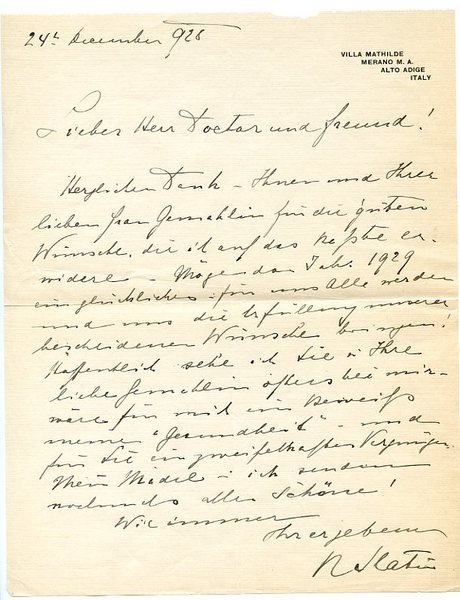 24t. December 928
VILLA MATHILDE
MERANO M. A.
ALTO ADIGE
ITALY
Lieber Herr Doctor und Freund!
Herzlichen Dank – Ihnen und Ihrer
lieben Frau Gemahlin für die guten
Wünsche, die ich auf das beste er-
widere – Möge das Jahr 1929
ein glückliches für uns Alle werden
und uns die Erfüllung unserer
bescheidenen Wünsche bringen!
Hoffentlich sehe ich Sie u Ihre
liebe Gemahlin öfters bei mir –
wäre für mich ein Beweis
meiner "Gesundheit" – und
für Sie ein zweifelhaftes Vergnügen
Mein Madel u ich senden
nochmals alles Schöne!
Wie immer
Ihr ergebener
R Slatin